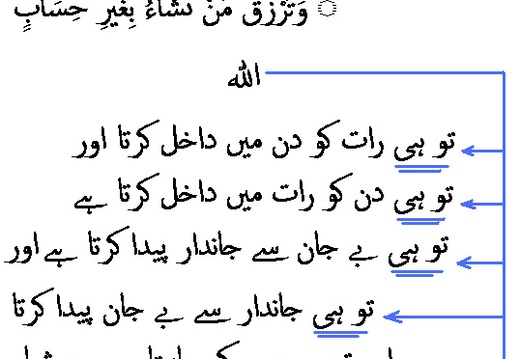 وَتَرْزُقُ مَنْ تَشَاءُ بِغَيْرِ حِسَابٍ
الله
تو ہی رات کو دن میں داخل کرتا اور
تو ہی دن کو رات میں داخل کرتا ہے
تو ہی بے جان سے جاندار پیدا کرتا ہے اور
تو ہی جاندار سے بے جان پیدا کرتا